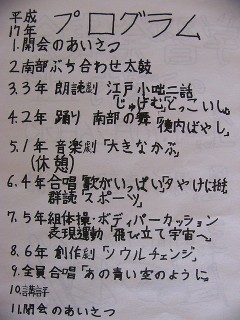 平成
17年
プログラム
1.開会のあいさつ
2.南部ぶち合わせ太鼓
3.3年 朗読劇 江戸小咄二話
「じゅげむ」「どっこいし。」
4.2年 踊り 南部の舞「機内ばやし」
5.1年 音楽劇「大きなかぶ」
(休憩)
6.4年 合唱「歌がいっぱい」「夕やけに拍手」
群読 スポーツ」
7.5年 組体操・ボディパーカッション
表現運動「飛び立て宇宙へ」
8.6年 創作劇「ソウルチェンジ」
9.全員合唱「あの青い空のように」
10.講評
11.閉会のあいさつ